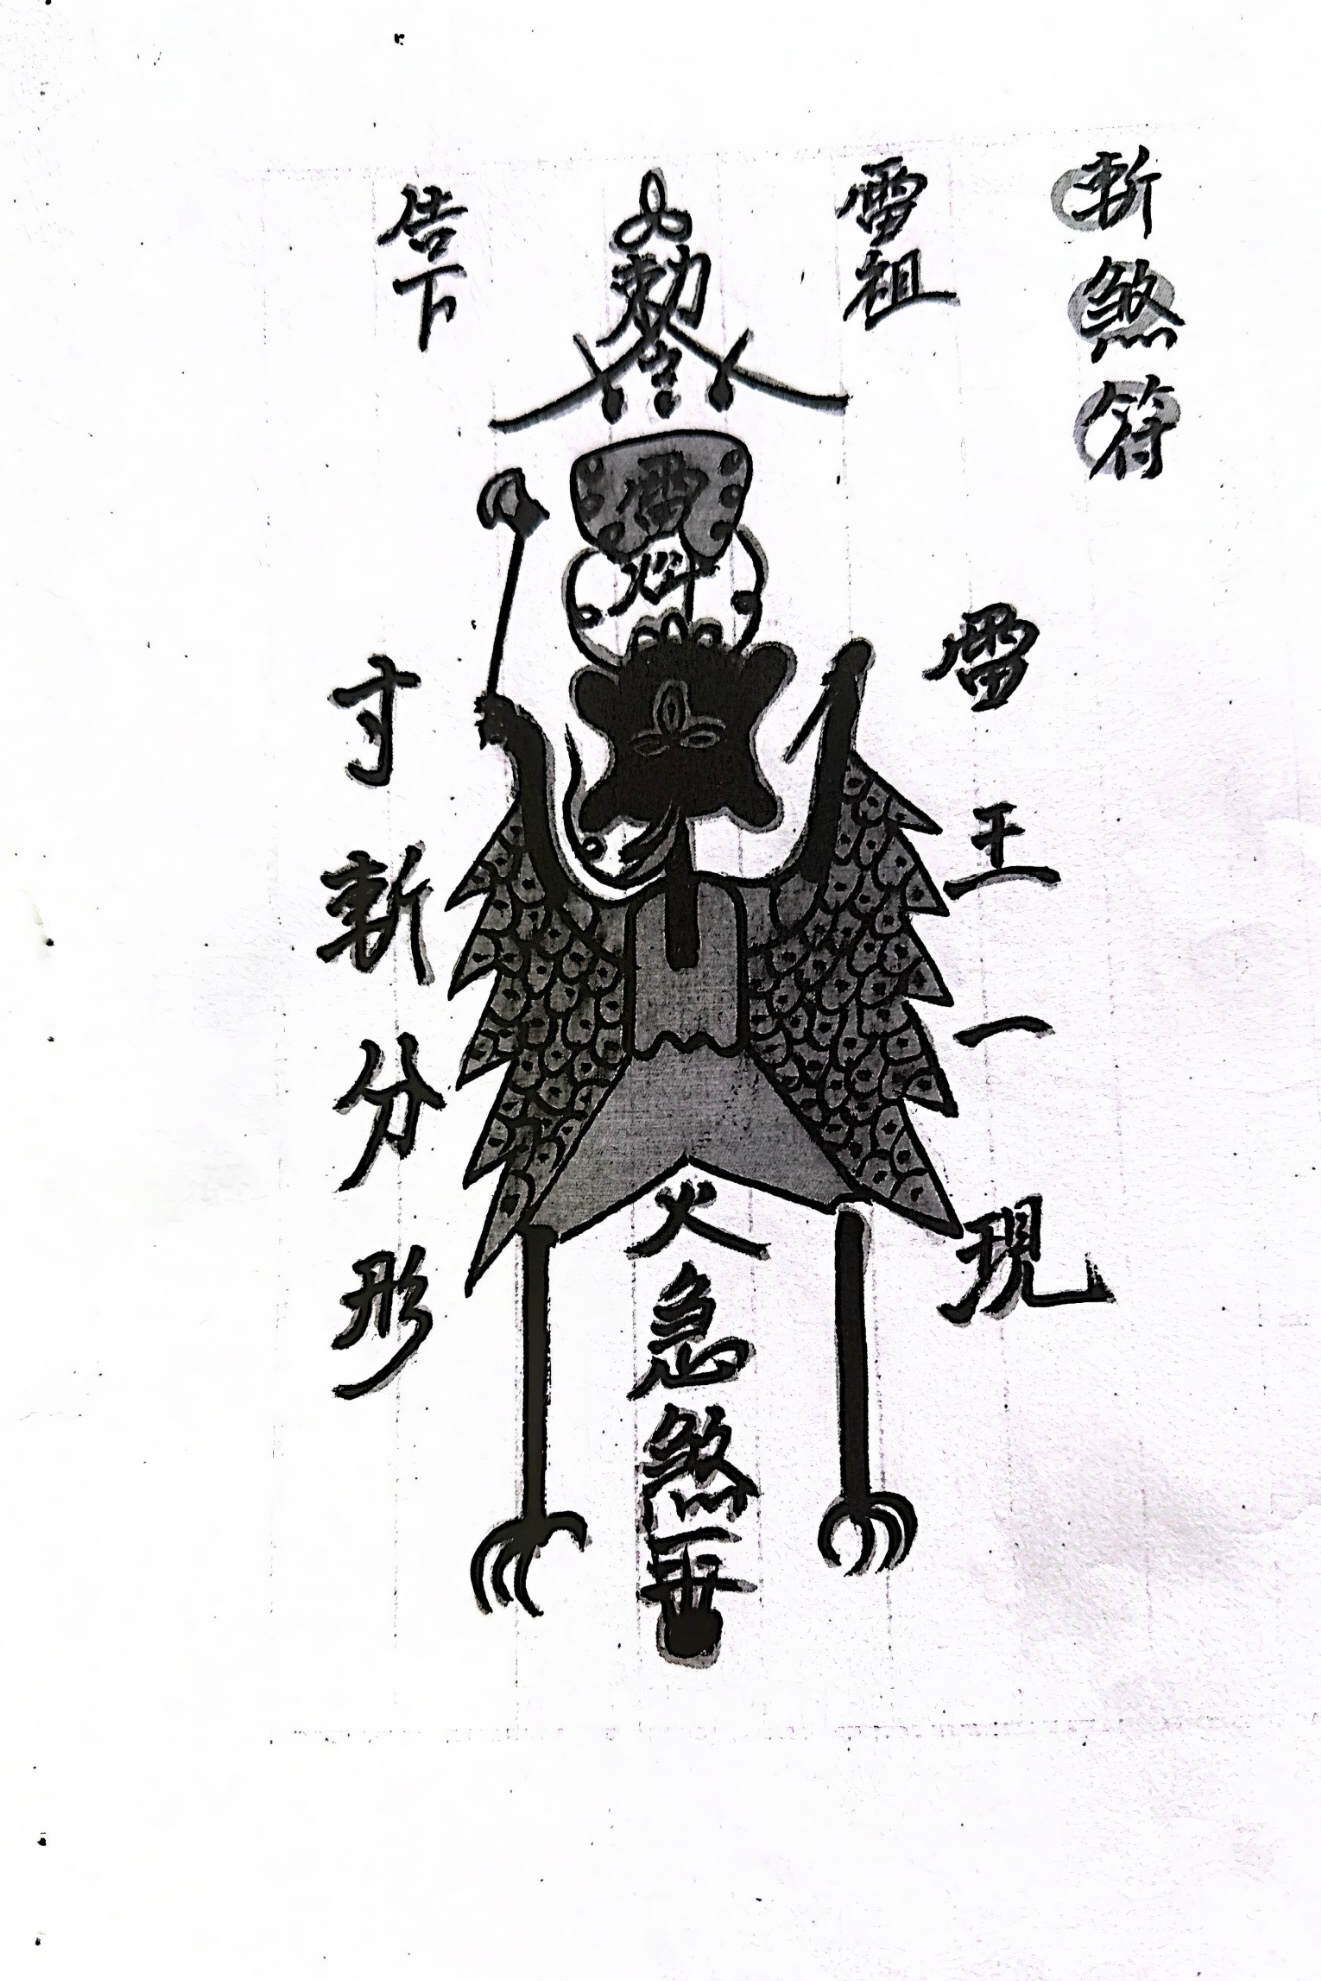 斬煞符
雷祖
勅令
告下
雷
雷王一現
寸斬分形
火急煞